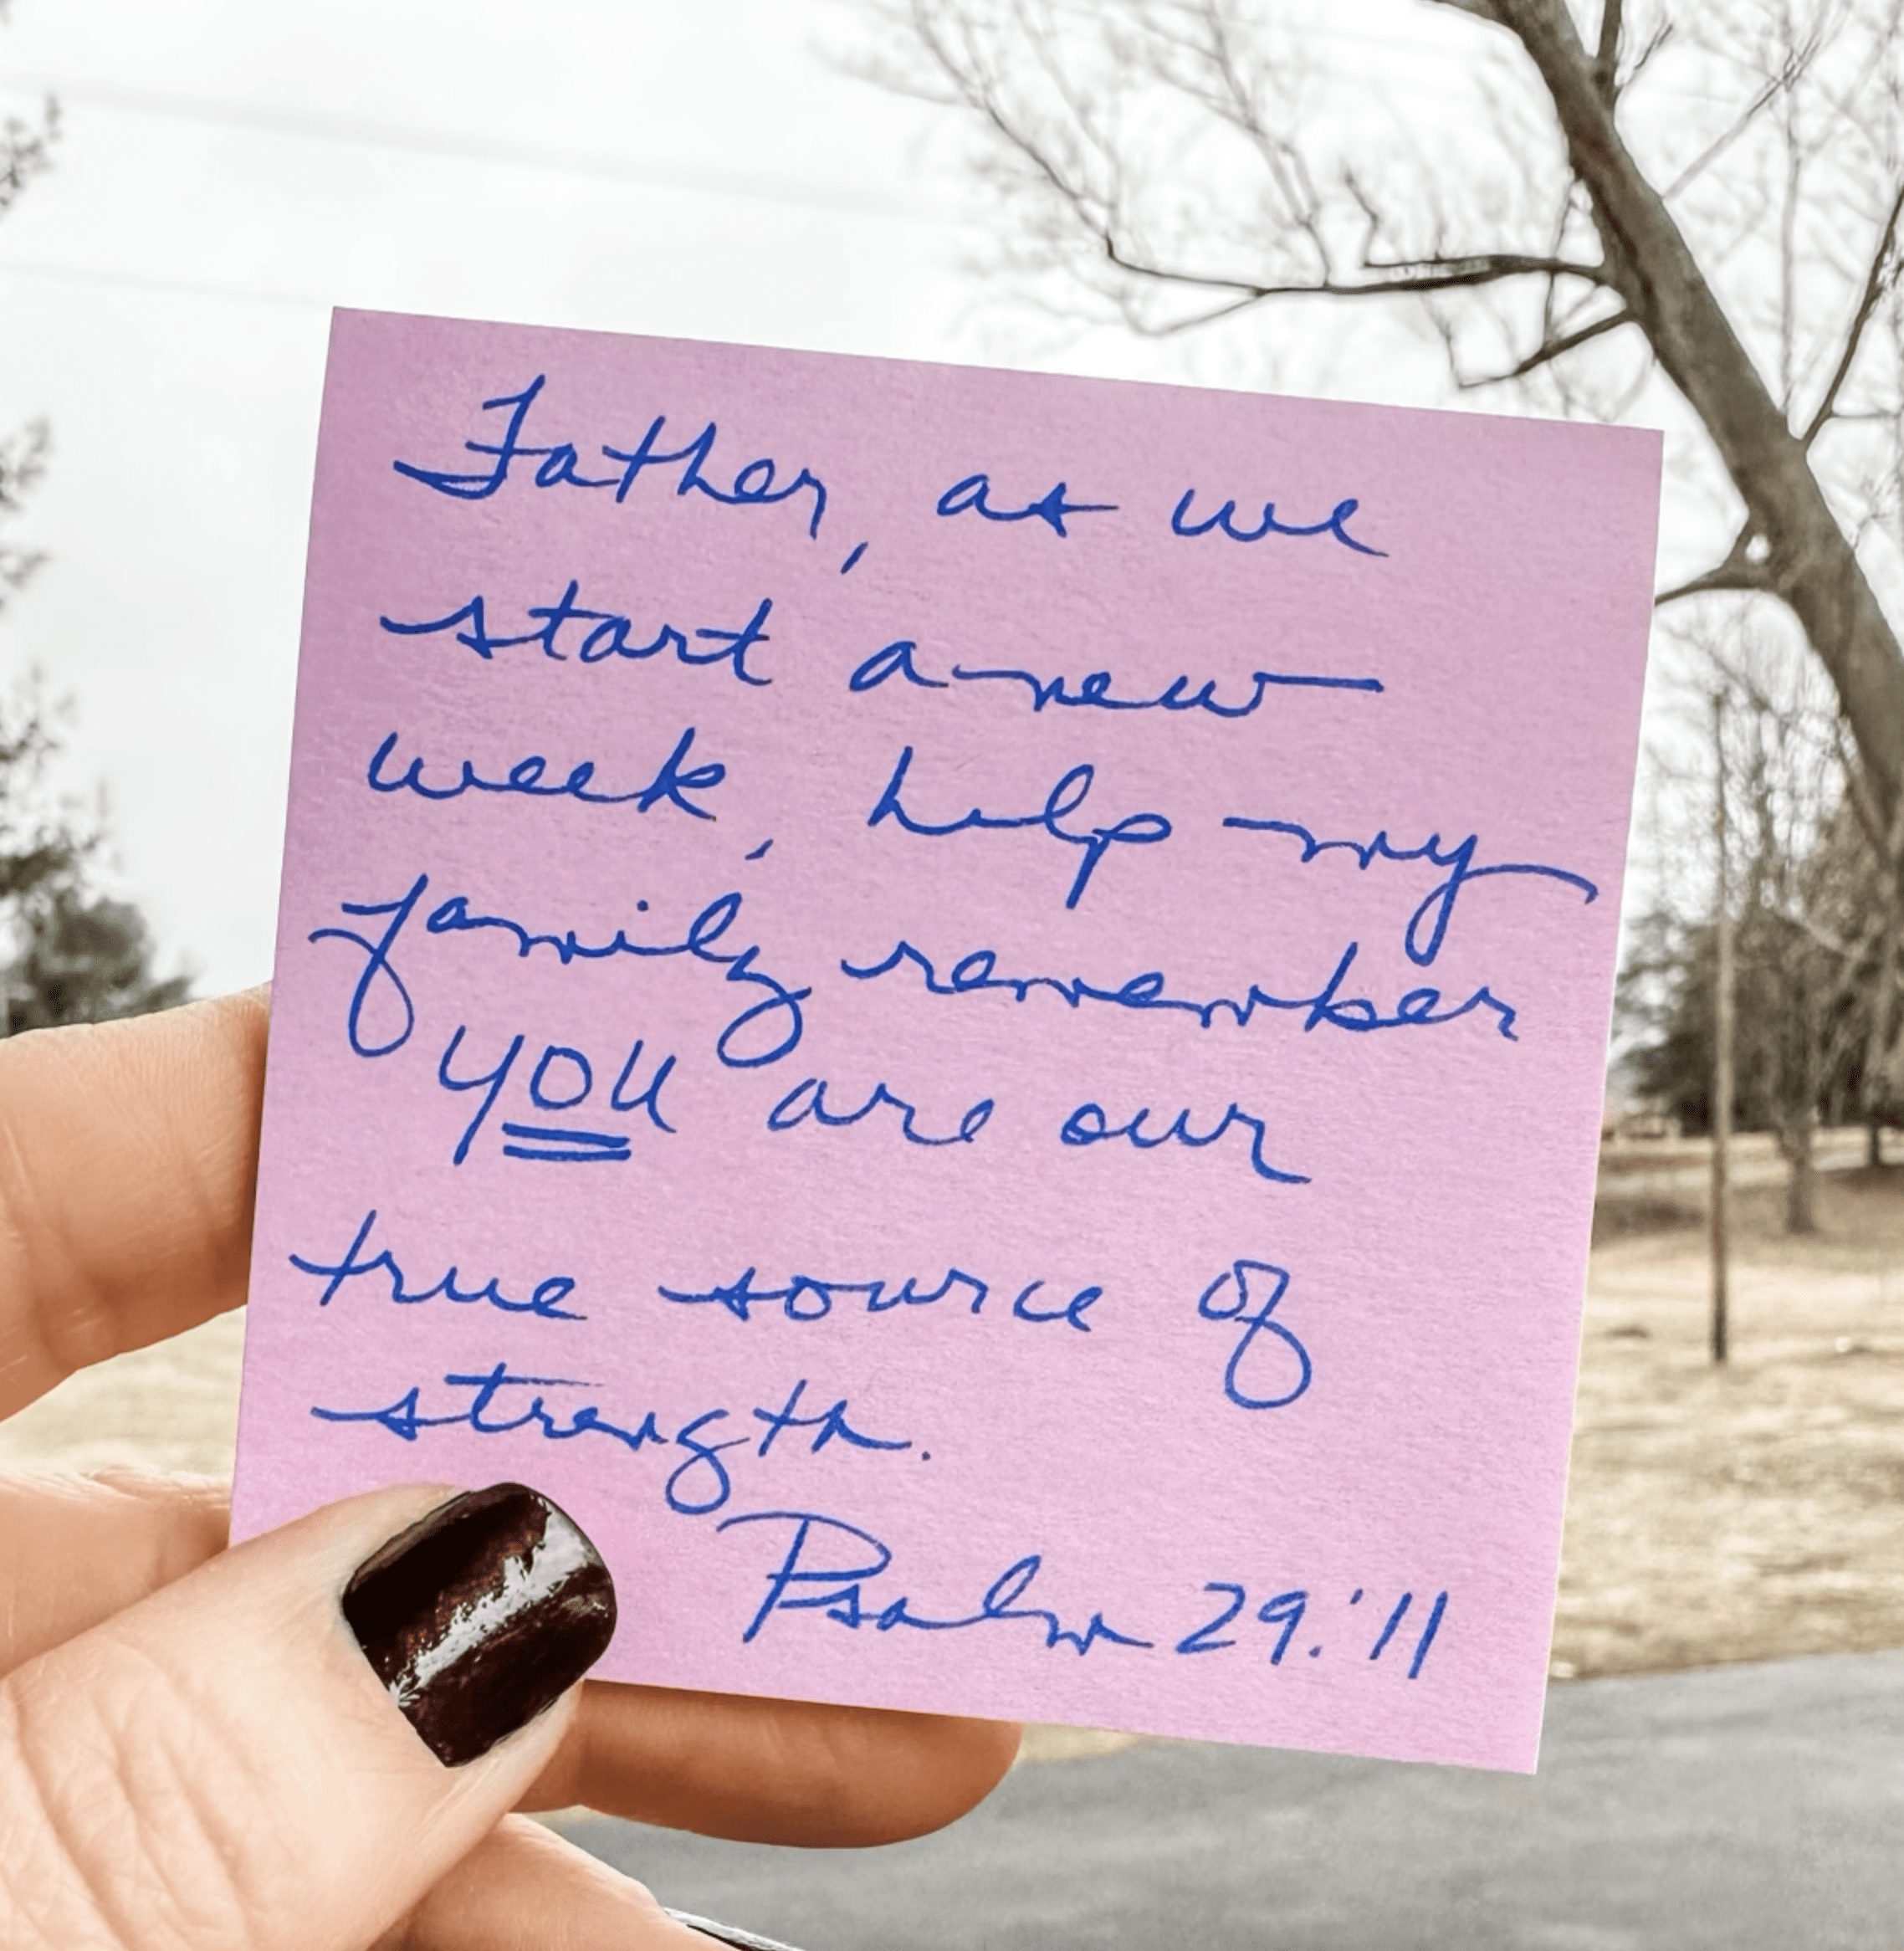 Father, as we
start a new
week, help my
family remember
YOU are our
true source of
strength.
Psalm 29:11